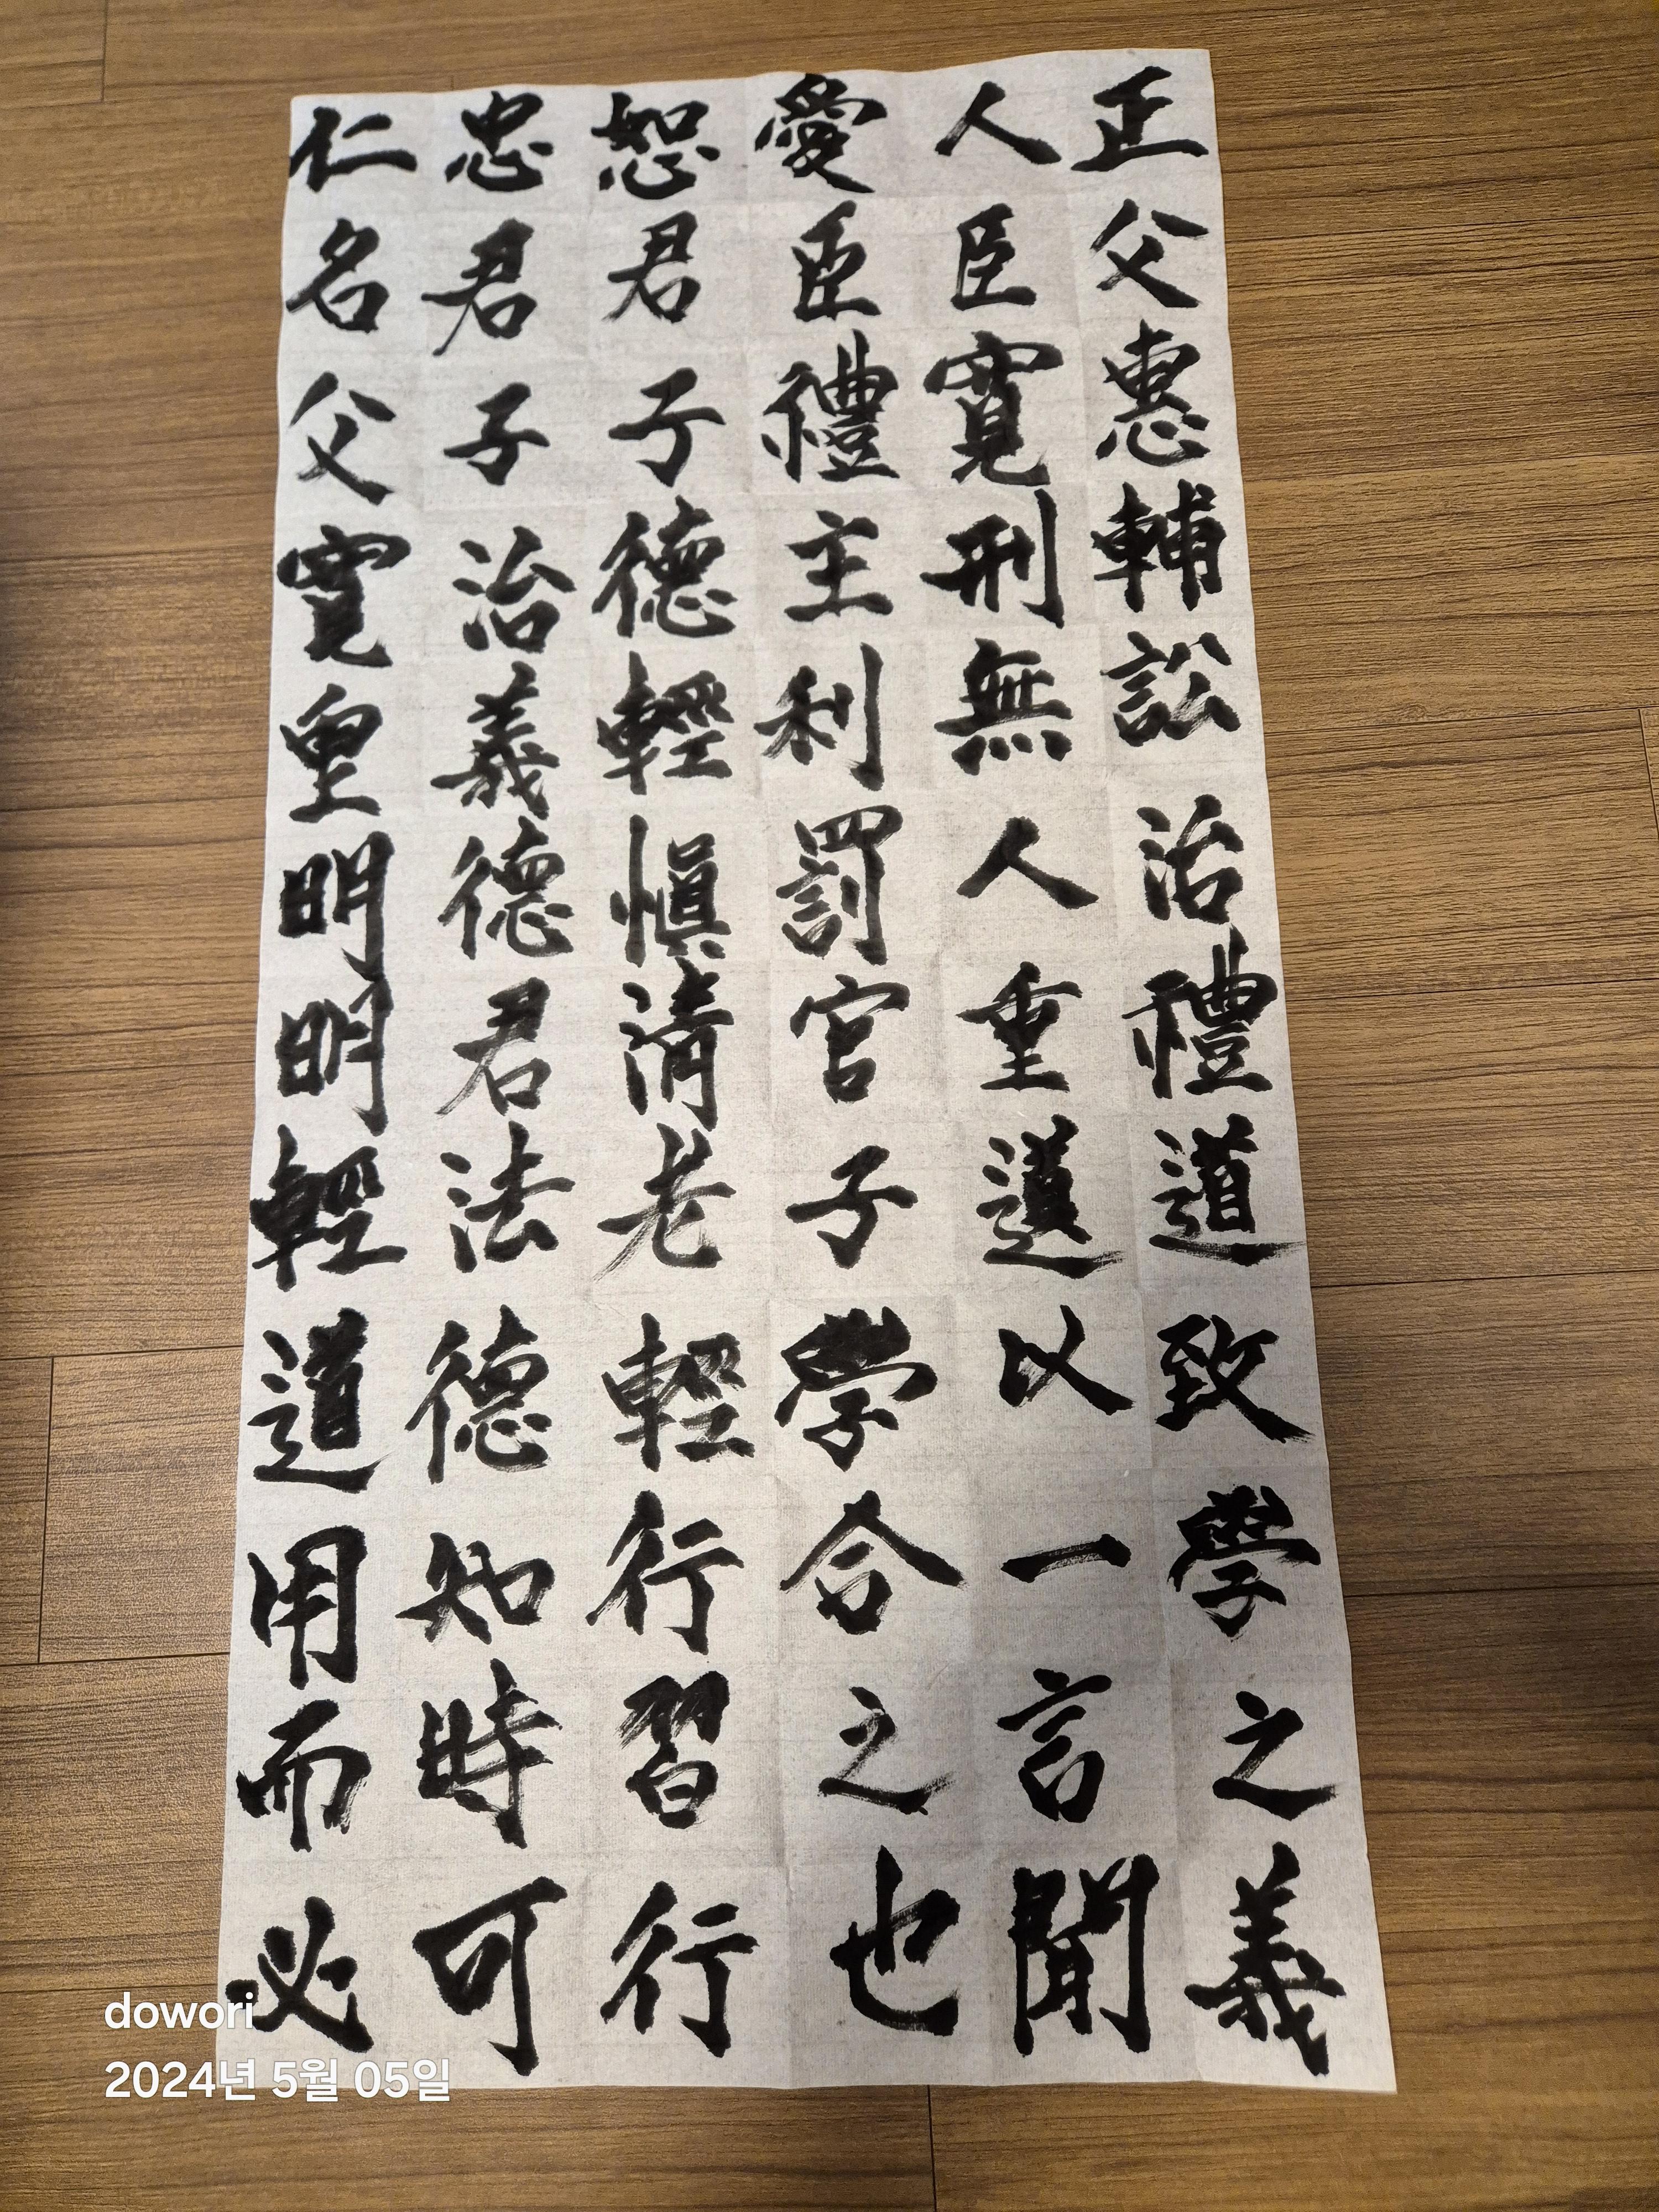 正父惠輔訟治禮道致學之義
人臣寬刑無人重道以一言聞
愛臣禮主利罰官子學合之也
恕君子德輕慎清老輕行習行
忠君子治義德君法德知時可
仁名父寬重明明輕道用而必
dowori
2024년 5월 05일